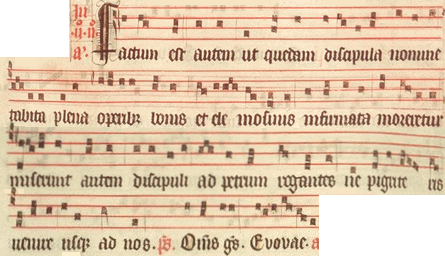 Factum est autem ut quedam discipula nomine
tabita plena operibꝫ bonis et ele mosinis infirmata moreretur
miserunt autem discipuli ad petrum rogantes ne pigrite ris
uenire usqꝫ ad nos. ps. Om̄s gs. Evovae. a